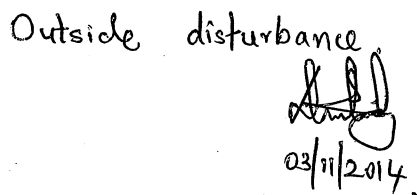 Outside disturbance
03/11/2014